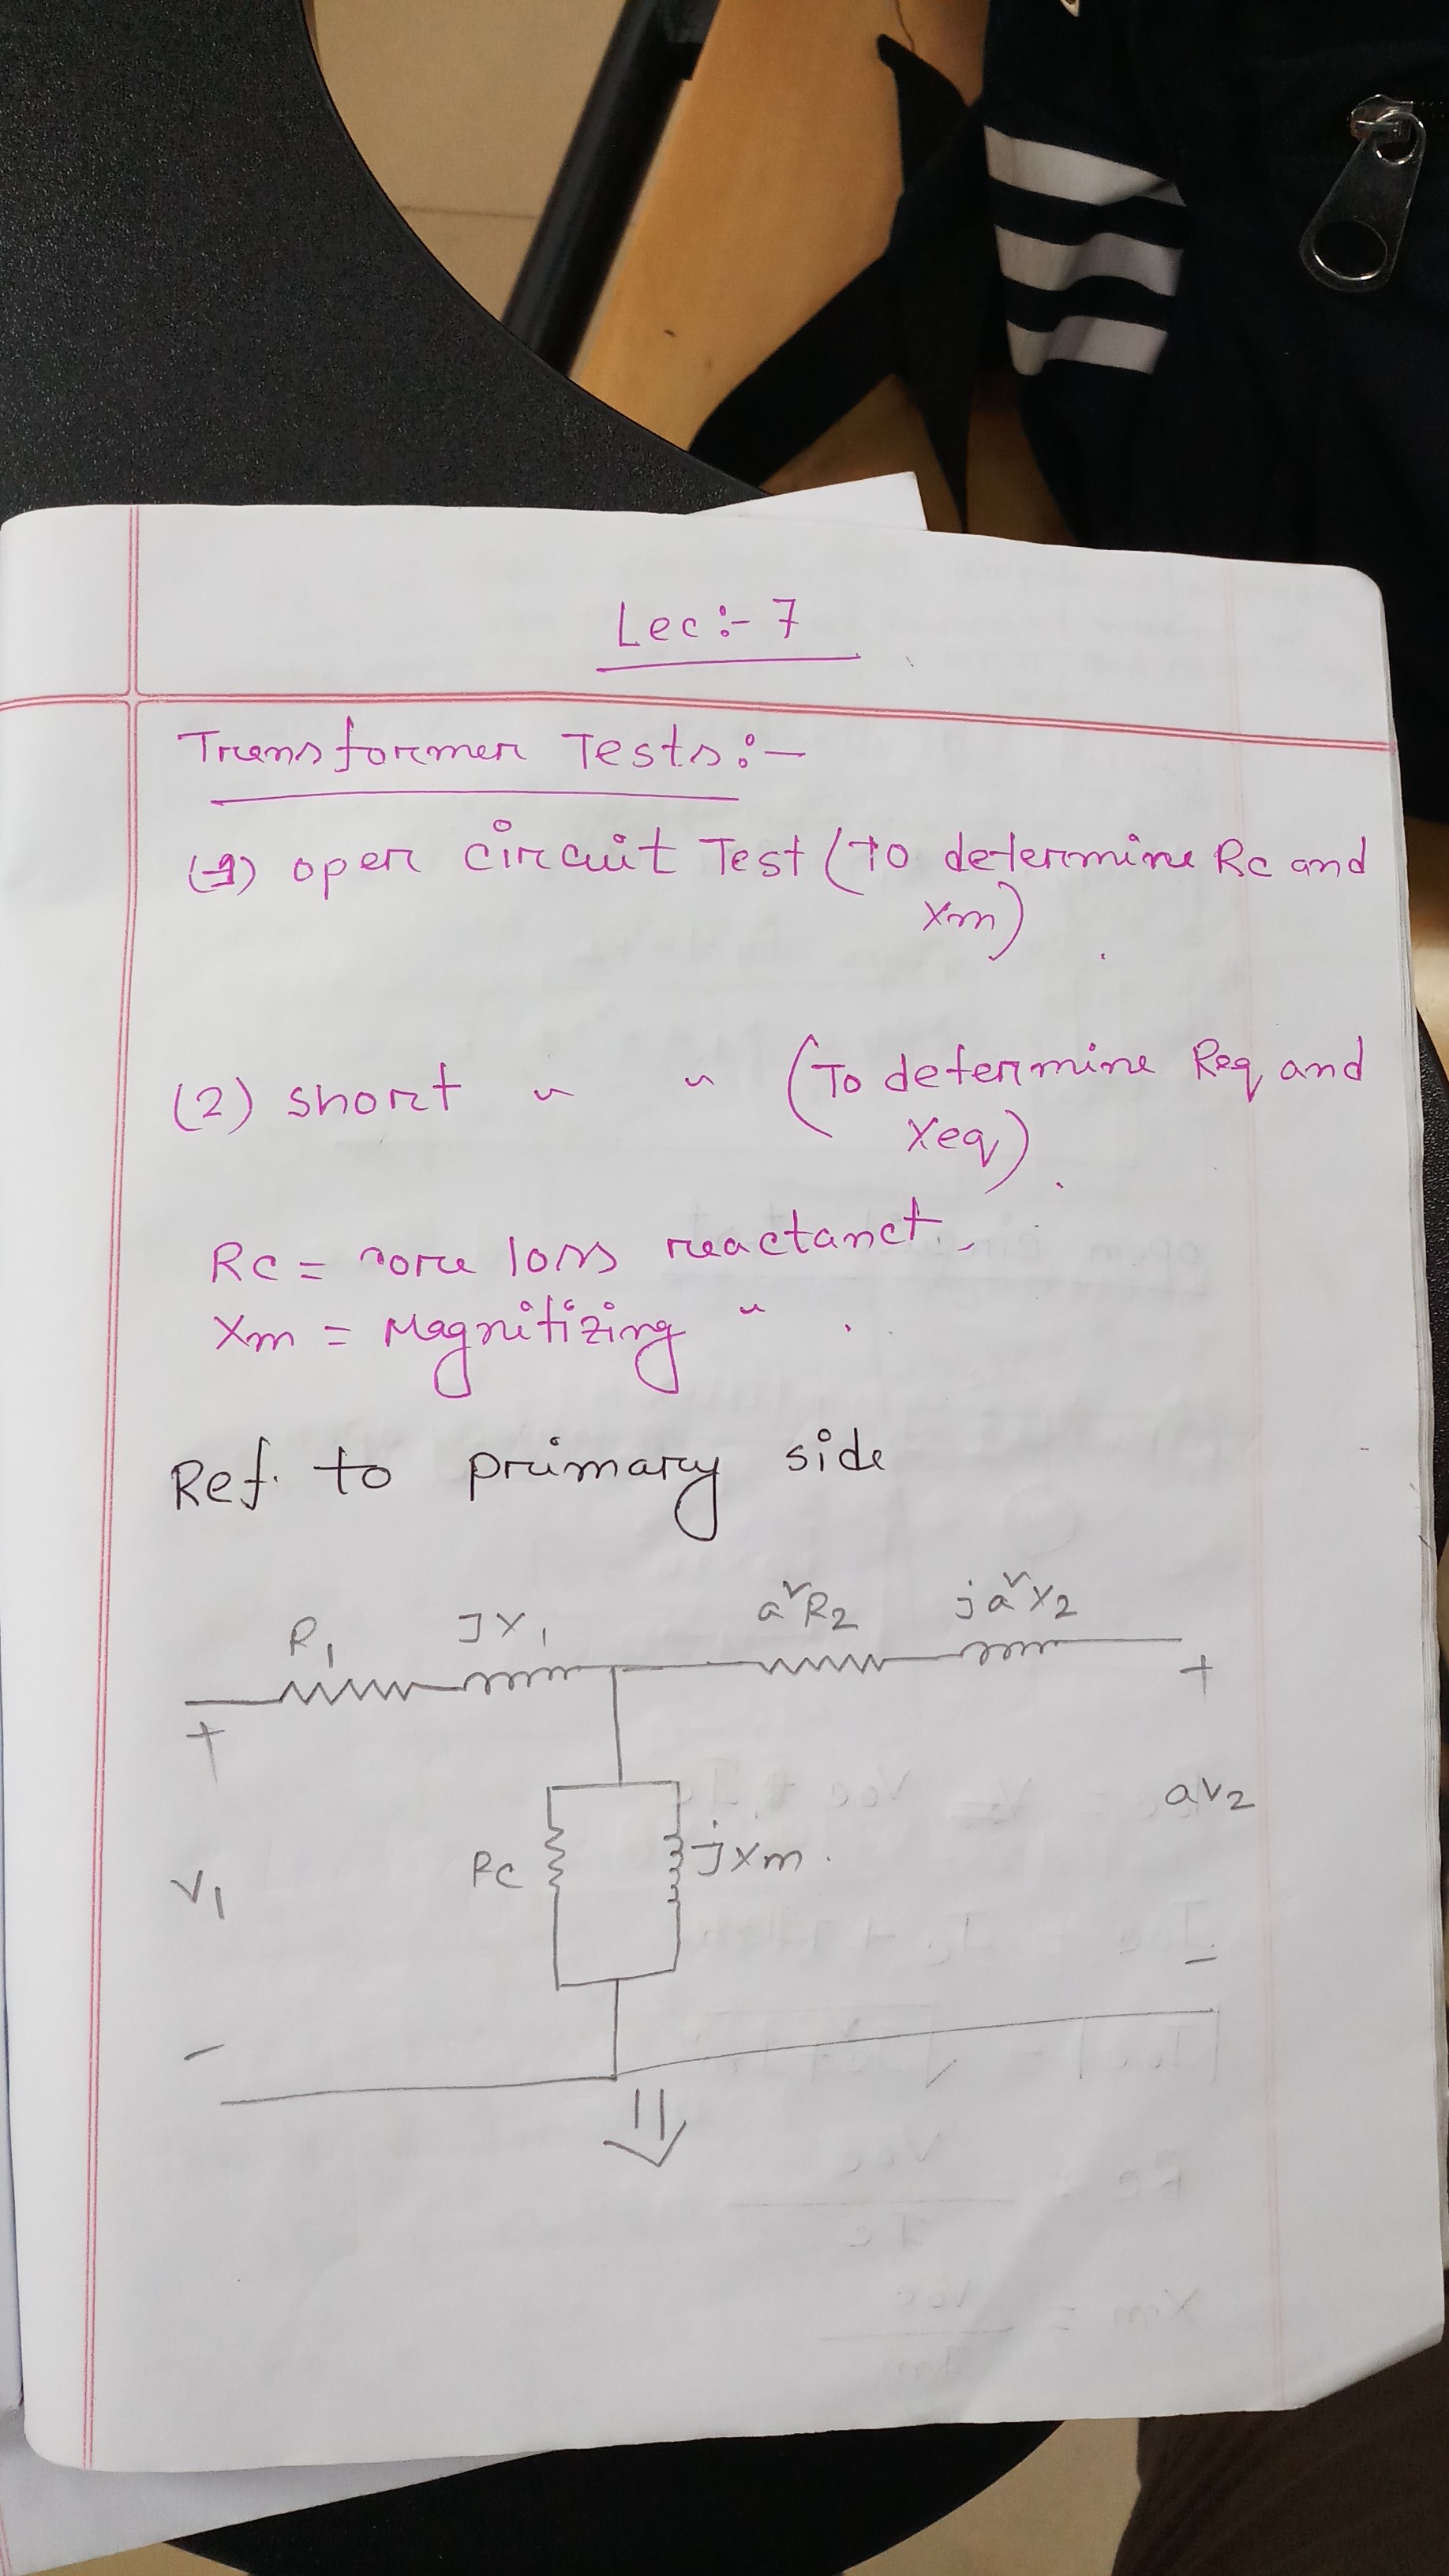 Lec:- 7
Transformer Tests:-
(1) open circuit Test (To determine Rc and
Xm)
(2) short " " (To determine Req and
Xeq)
Rc = core loss reactanct.
Xm = Magnitizing " .
Ref. to primary side
R1 JX1 a²R2 ja²X2
+ +
V1 Rc jXm. aV2
- -